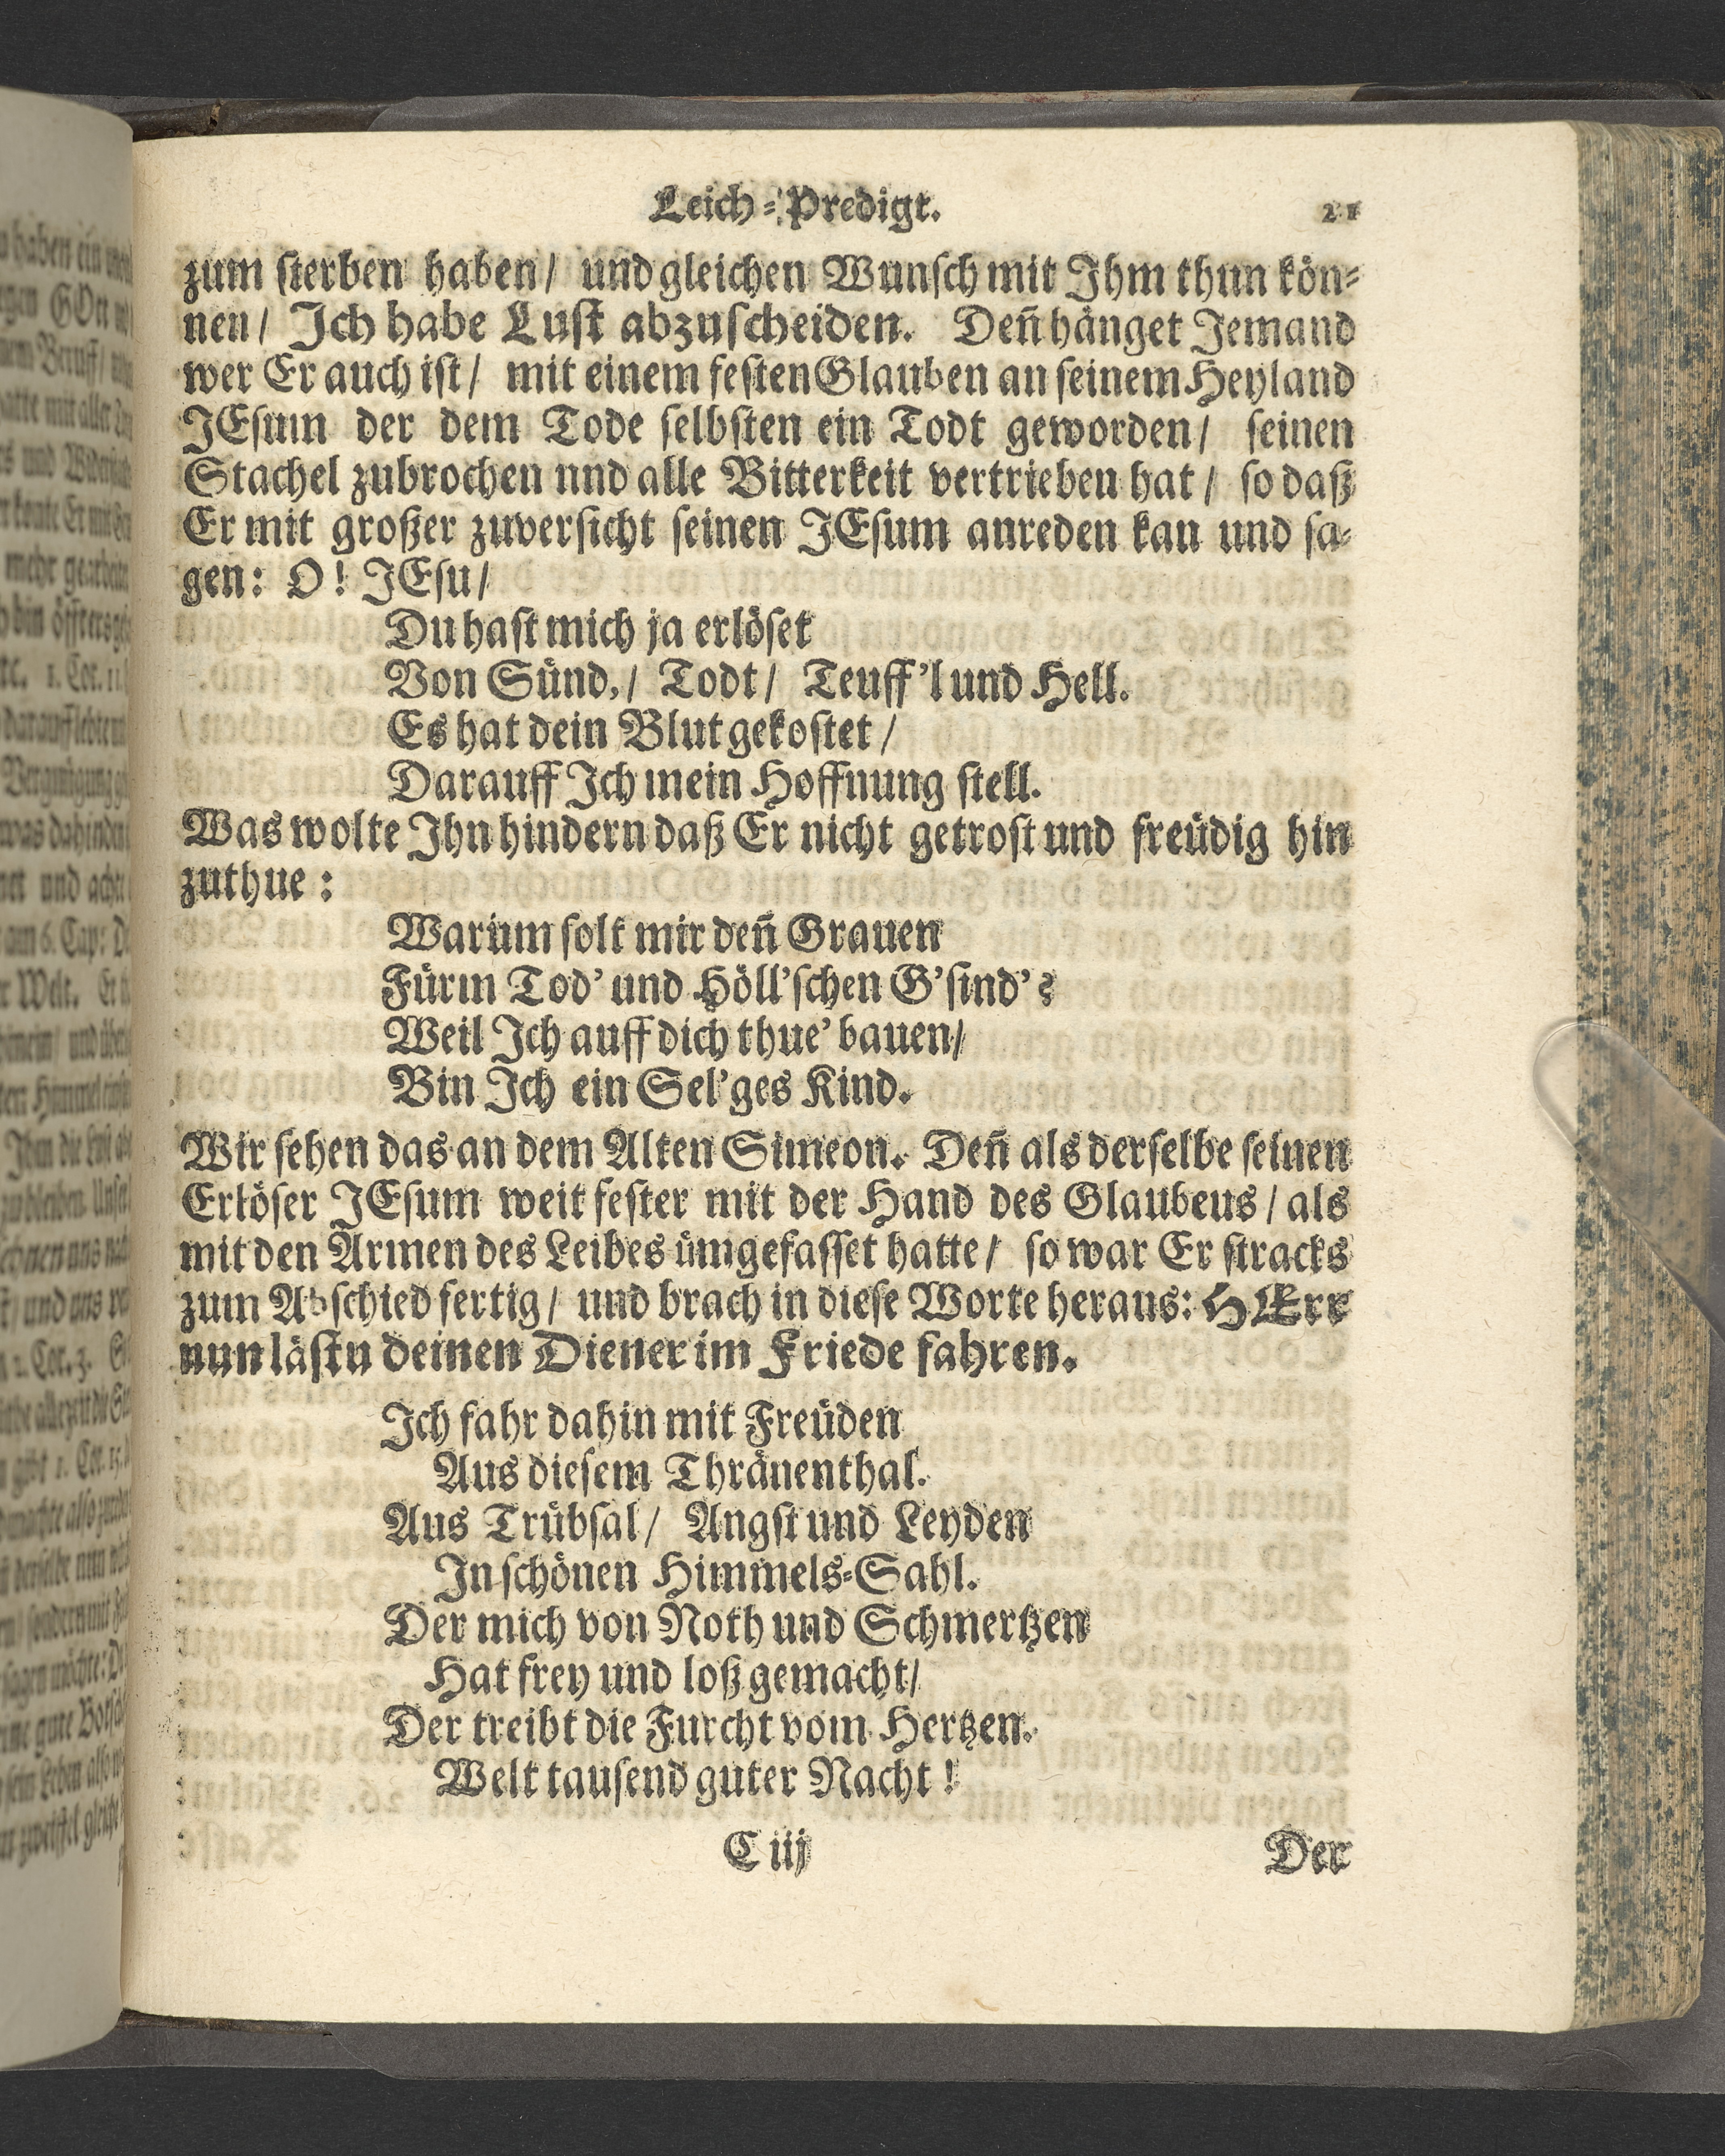 Leich-Predigt. 21
zum sterben haben/ und gleichen Wunsch mit Ihm thun kön-
nen/ Ich habe Lust abzuscheiden. Deñ hänget Jemand
wer Er auch ist/ mit einem festen Glauben an seinem Heyland
JEsum der dem Tode selbsten ein Todt geworden/ seinen
Stachel zubrochen nnd alle Bitterkeit vertrieben hat/ so daß
Er mit großer zuversicht seinen JEsum anreden kan und sa-
gen: O! JEsu/
Du hast mich ja erlöset
Von Sünd,/ Todt/ Teuff'l und Hell.
Es hat dein Blut gekostet/
Darauff Ich mein Hoffnung stell.
Was wolte Ihn hindern daß Er nicht getrost und freüdig hin
zuthue:
Warüm solt mir deñ Grauen
Fürm Tod' und Höll'schen G'sind'?
Weil Ich auff dich thue' bauen/
Bin Ich ein Sel'ges Kind.
Wir sehen das an dem Alten Simeon. Deñ als derselbe seinen
Erlöser JEsum weit fester mit der Hand des Glaubeus/ als
mit den Armen des Leibes ümgefasset hatte/ so war Er stracks
zum Abschied fertig/ und brach in diese Worte heraus: HErr
nun lästu deinen Diener im Friede fahren.
Ich fahr dahin mit Freüden
Aus diesem Thränenthal.
Aus Trübsal/ Angst und Leyden
In schönen Himmels-Sahl.
Der mich von Noth und Schmertzen
Hat frey und loß gemacht/
Der treibt die Furcht vom Hertzen.
Welt tausend guter Nacht!
C iij Der